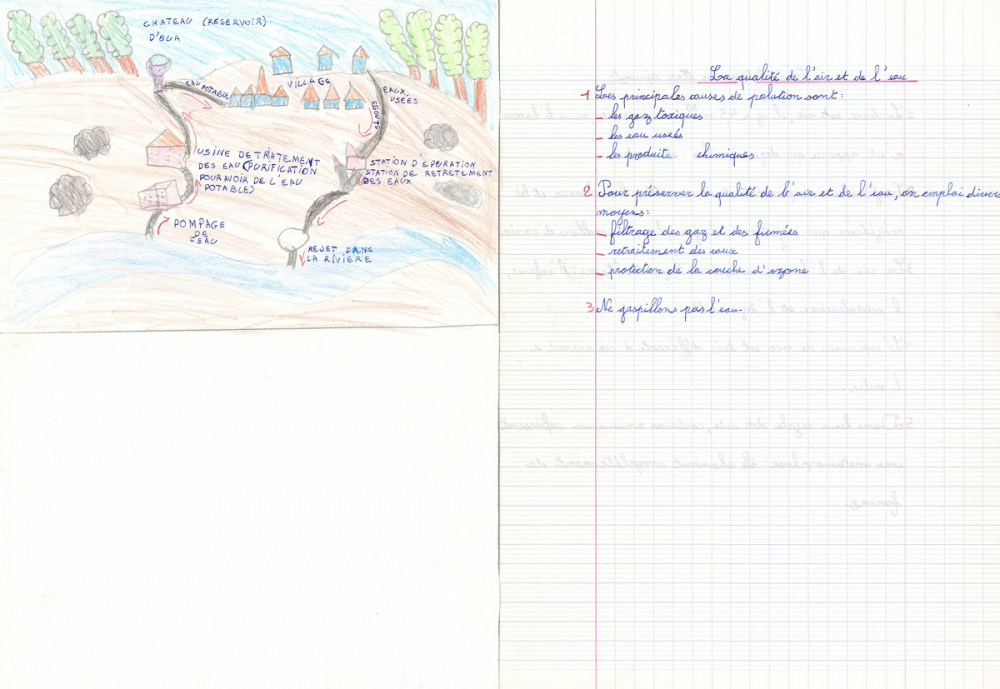 CHATEAU (RESERVOIR)
D'EUA
EAU POTABLE
VILLAGES
EAUX
USÉES
EGOUTS
USINE DE TRAITEMENT
DES EAU (PURIFICATION
POUR AVOIR DE L'EAU
POTABLE)
STATION D'EPURATION
STATION DE RETRETEMENT
DES EAUX
POMPAGE
DE
L'EAU
REJET DANS
LA RIVIÈRE
La qualité de l'air et de l'eau
1 Les principales causes de polution sont:
– les gaz toxiques
– les eau useés
– les produit chimiques
2 Pour préserver la qualité de l'air et de l'eau, on emploi diver
moyens:
– filtrage des gaz et des fumées
– retraitement des eaux
– protection de la couche d'ozone
3 Ne gaspillons pas l'eau.